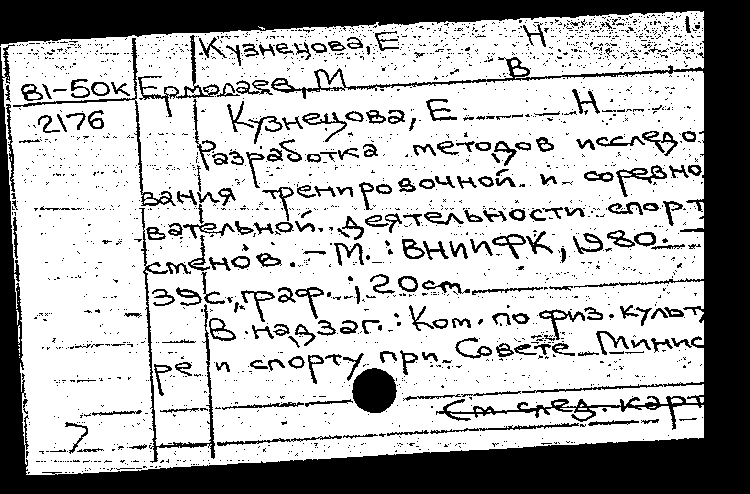 Кузнецова, Е Н 1.
81-50к Ермолаев, М В
2176 Кузнецова, Е Н
Разработка методов исследо-
вания тренировочной и соревно
вательной деятельности спорт
сменов. – М. : ВНИИФК, 1980. –
39с., граф. ; 20см.
В надзаг. : Ком. по физ. культу
ре и спорту при Совете Минис
См след. карт
7